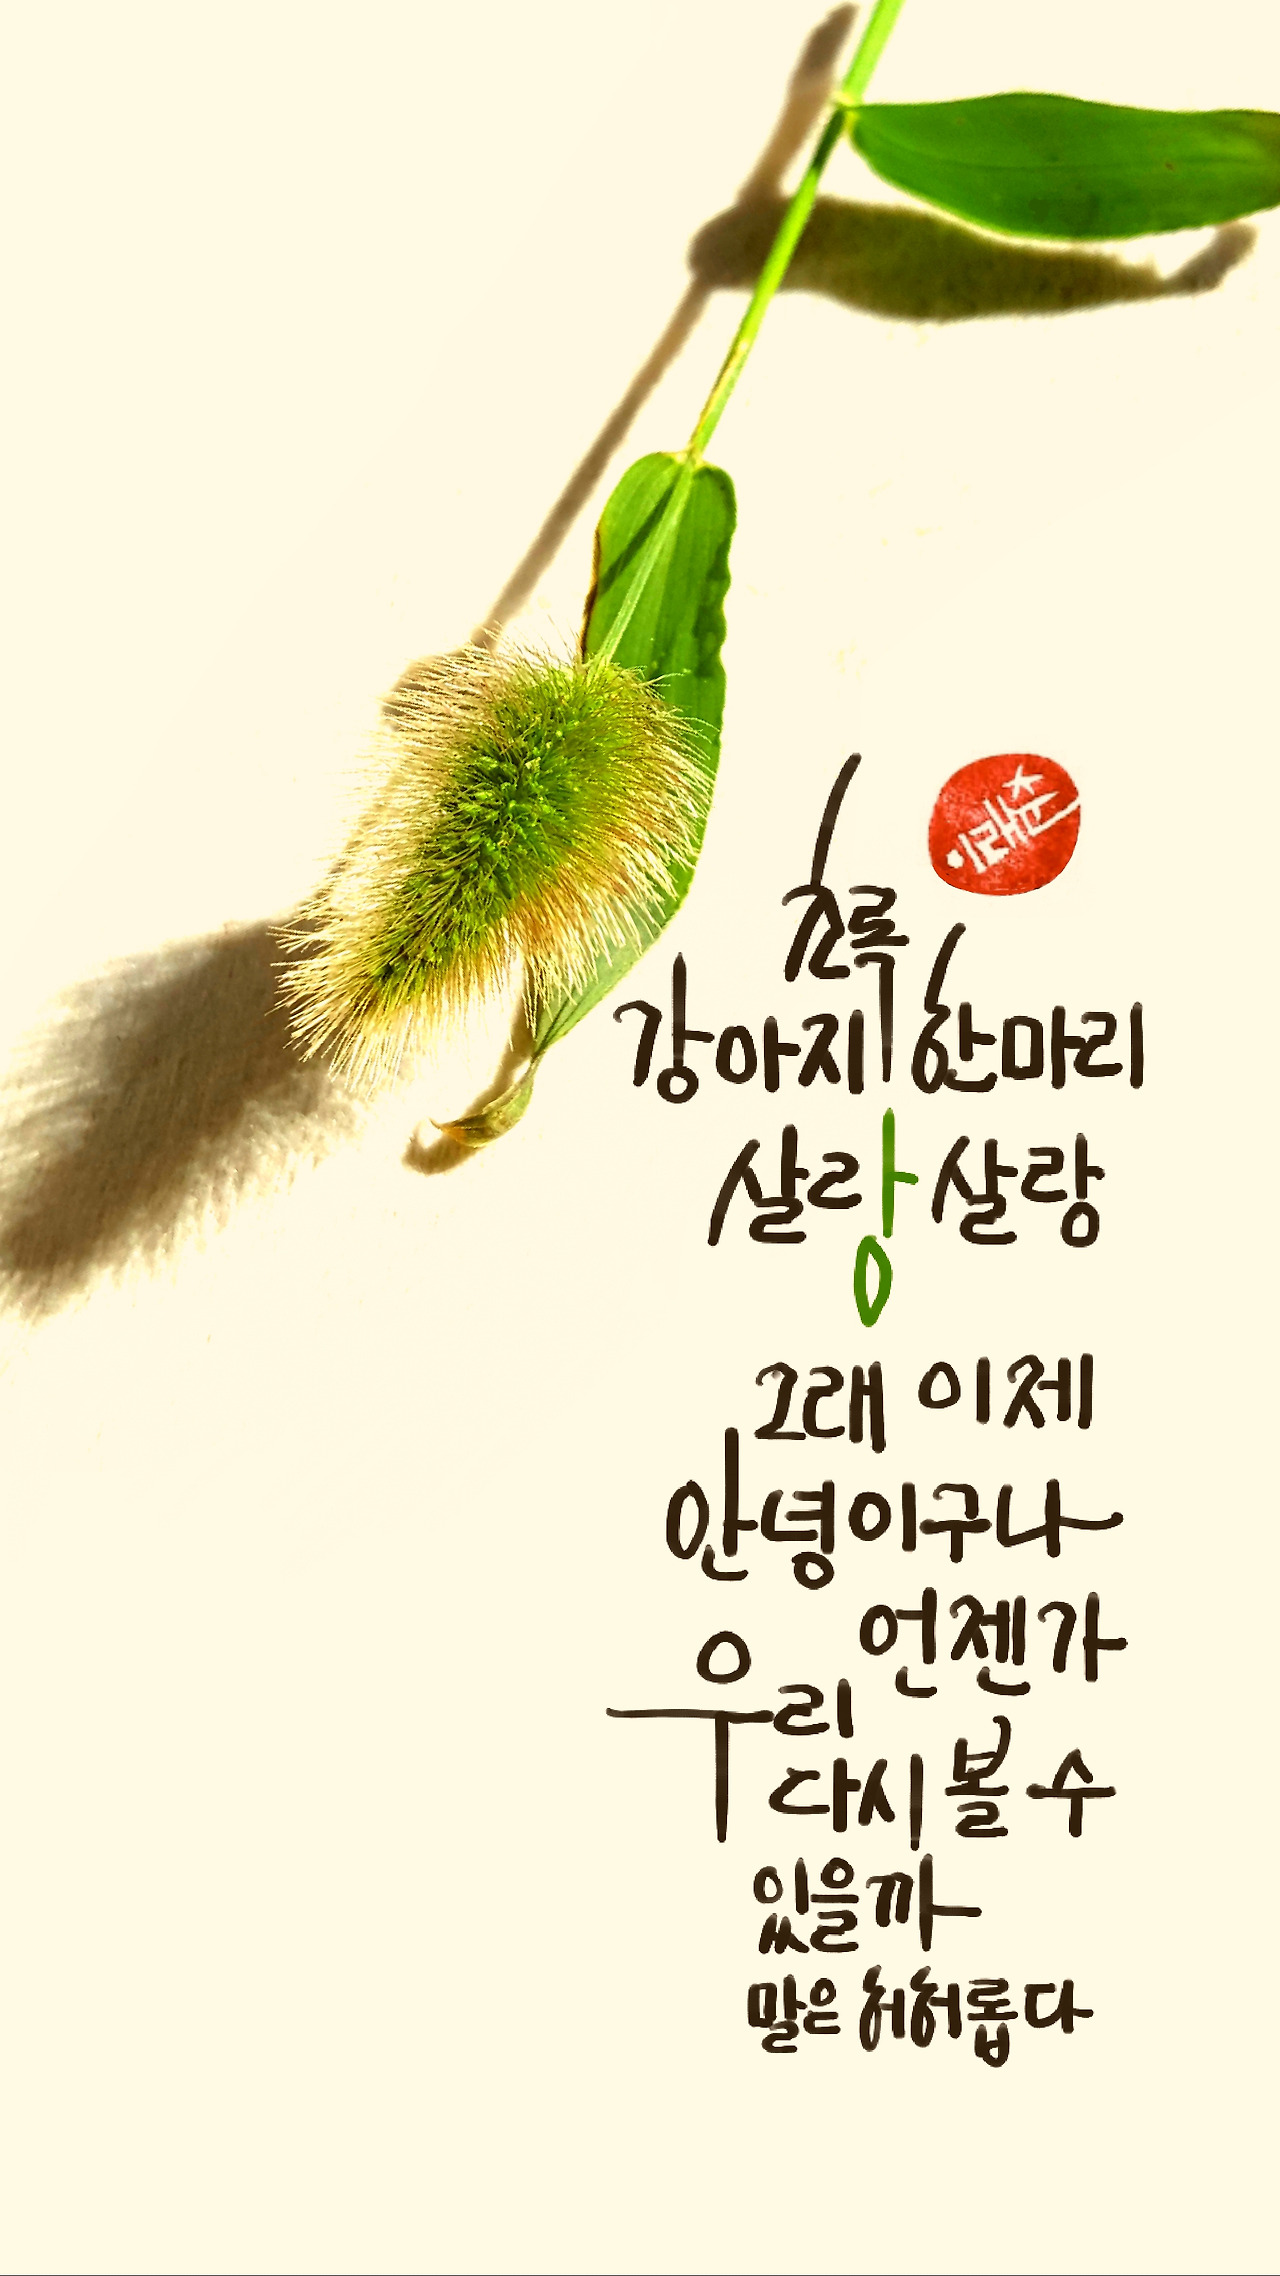 이래춘
초록
강아지 한마리
살랑 살랑
그래 이제
안녕이구나
언젠가
우리
다시 볼 수
있을까
말은 허허롭다